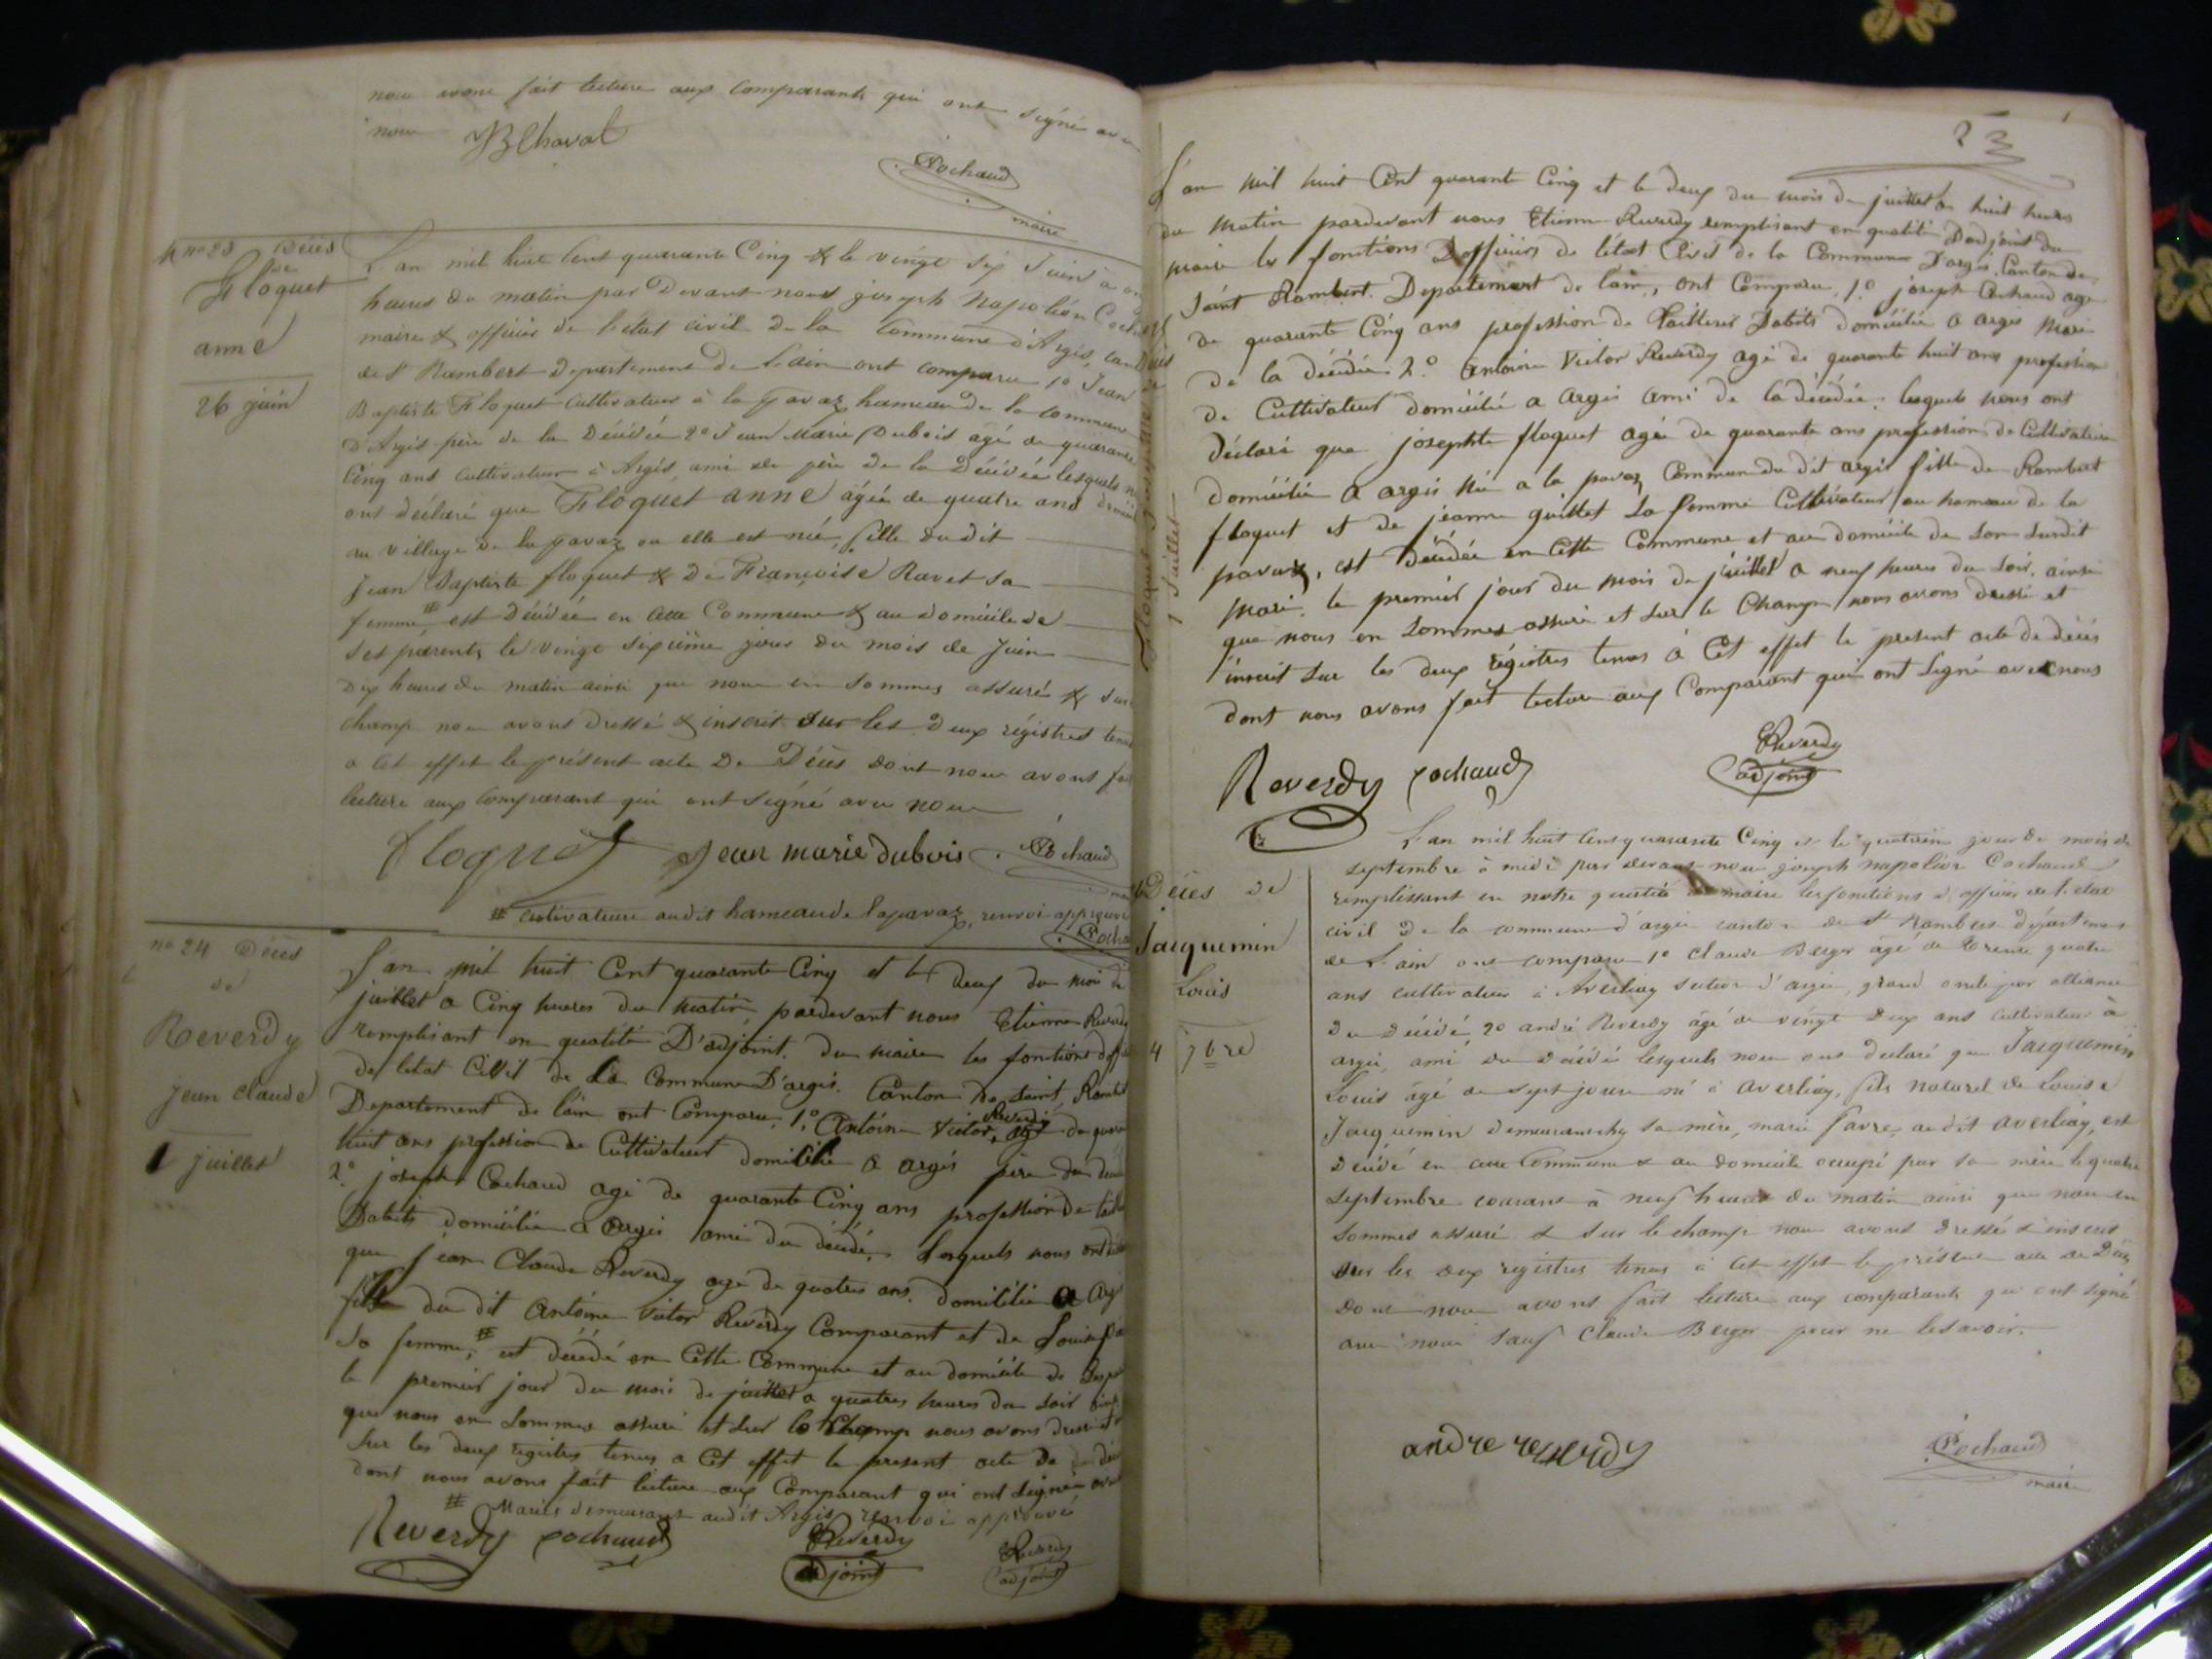 nous avons fait lecture aux comparants qui ont signé avec
nous JB Chaval
Cochaud
maire
nº 23 Décès
de
Floquet
anne
26 juin
L'an mil huit cent quarante Cinq & le vingt six Juin à
heures du matin par Devant nous joseph Napoléon
maire & officier de l'état civil de la Commune d'Argis, can
de St Rambert Département de l'ain ont comparu 1º Jean
Baptiste Floquet cultivateur à la pavaz hameau de la commune
d'Argis père de la Décédée 2º Jean Marie Dubois agé de quarante
Cinq ans cultivateur à Argis, ami du père de la Décédée lesquels
ont déclaré que Floquet anne agée de quatre ans
au village de la pavaz ou elle est née, fille du dit
Jean Baptiste floquet & De Françoise Ravet sa
femme # est décédée en cette Commune & au domicile de
ses parents le vingt sixième jour du mois de Juin
Dix heures du matin ainsi que nous en sommes assuré & sur
champ nous avons dressé & inscrit sur les Deux régistres tenus
a cet effet le présent acte De Décès dont nous avons
lecture aux comparant qui ont signé avec nous
Floquet Jean marie dubois Cochaud
# cultivateurs audit hameau de lapavaz, renvoi approuvé
nº 24 Décès
de
Reverdy
jean claude
1 juillet
L'an mil huit Cent quarante Cinq et le deux du mois de
juillet a Cinq heures du matin, pardevant nous Etienne Reverdy
remplisant en qualité D'adjoint du maire les fonctions
de létat Civil de La Commune D'argis. Canton de Saint
Departement de l'ain ont Comparu, 1.º Antoine Victor, Reverdy agé de
huit ans profession de Cultivateur domicilié a argis père du
2.º joseph Cochaud agé de quarante Cinq ans profession de
Dabits domicilié a argis ami du décédé. Lesquels nous ont
que jean Claude Reverdy agé de quatres ans. domicilié a
fils du dit Antoine Victor Reverdy Comparant et de Louise
Sa femme, # est décédé en Cette Commune et au domicile de
le premier jour du mois de juillet a quatres heures du Soir
que nous en Sommes assuré et Sur le Champ nous avons dressé et
Sur les deux registres tenus a Cet effet le present acte De
dont nous avons fait lecture aux Comparant qui ont Signé
# Mariés demeurant audit Argis, renvoi approuvé
Reverdy Cochaud
Reverdy
adjoint
Reverdy
adjoint
23
1 Juillet
L'an mil huit Cent quarante Cinq et le deux du mois de juillet a huit heures
du matin pardevant nous Etienne Reverdy remplisant en qualité Dadjoint du
maire les fonctions Dofficiers de létat Civil de la Commune D'argis, Canton de
Saint Rambert. Departement de l'ain, ont Comparu, 1.º joseph Cochaud agé
de quarante Cinq ans profession de Tailleur Dabits domicilié a argis Mari
de la décédée. 2.º Antoine Victor Reverdy agé de quarante huit ans profession
de Cultivateur domicilié a argis ami de la décédée. lesquels nous ont
déclaré que josephte floquet agée de quarante ans profession de Cultivatrice
domiciliée a argis née a la pavaz Commune du dit argis fille de Rambert
floquet et de jeanne guillet Sa femme Cultivateur au hameau de la
pavaz, est décédée en Cette Commune et au domicile de Son Surdit
Mari, le premier jour du mois de juillet a neuf heures du Soir. ainsi
que nous en Sommes assuré et Sur le Champ nous avons dressé et
inscrit Sur les deux régistres tenus à Cet effet le present acte de décès
dont nous avons fait lecture aux Comparant qui ont Signé avec nous
Reverdy Cochaud
Reverdy
adjoint
Décès de
Jacquemin
Louis
4 7bre
L'an mil huit cent quarante Cinq & le quatrième jour de mois de
septembre à midi par devant nous joseph napoléon Cochaud
remplissant en notre qualité de maire les fonctions d'officier de l'état
civil De la commune d'argis canton de St Rambert département
de L'ain ont comparu 1º claude Berger agé de trente quatre
ans cultivateur à Averliaz section d'argis, grand oncle par alliance
Du Décédé, 2º andré Reverdy âgé de vingt Deux ans cultivateur à
argis, ami du Décédé lesquels nous ont déclaré que Jacquemin
Louis âgé de sept jours né à averliaz, fils naturel de Louise
Jacquemin Demeurant chez sa mère, marie favre, audit averliaz, est
Décédé en cette Commune & au domicile occupé par sa mère le quatre
septembre courant à neuf heures du matin ainsi que nous en
sommes assuré & sur le champ nous avons Dressé & inscrit
sur les deux registres tenus à cet effet le présent acte de Décès
dont nous avons fait lecture aux comparants qui ont signé
avec nous sauf Claude Berger pour ne le savoir.
andre reverdy
Cochaud
maire